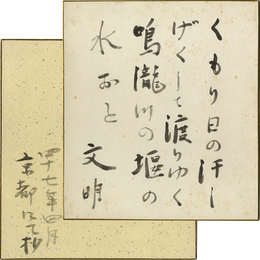 くもり日の汗し
げくして渡りゆく
鳴瀧川の堰の
水おと
文明
四十七年四月
京都にて抄